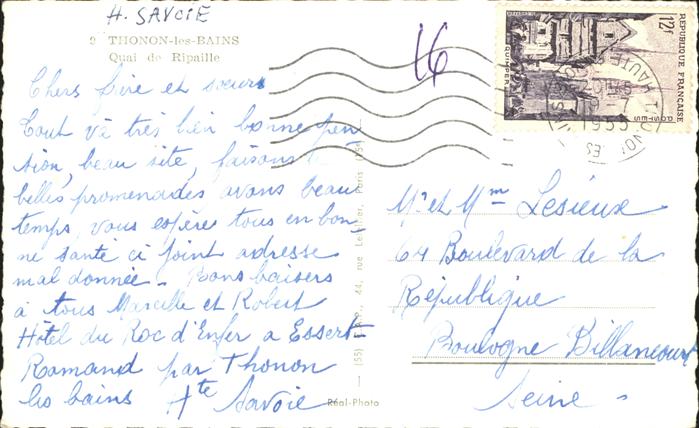 H. SAVOIE
2 THONON-les-BAINS
Quai de Ripaille
16
Chers frère et sœurs
Tout va très bien bonne pen
sion, beau site, faisons
belles promenades avons beau
temps, vous espère tous en bon-
ne santé ci joint adresse
mal donnée - Bons baisers
à tous Marcille et Robert
Hôtel du Roc d'Enfer a Essert-
Romand par Thonon
les bains Hte Savoie
Réal-Photo
44, rue Letellier, Paris (15e)
12F
REPUBLIQUE FRANÇAISE
POSTES
QUIMPER
THONON
HAUTE
1955
Mr et Mme Lesieux
64 Boulevard de la
République
Boulogne Billancourt
Seine.